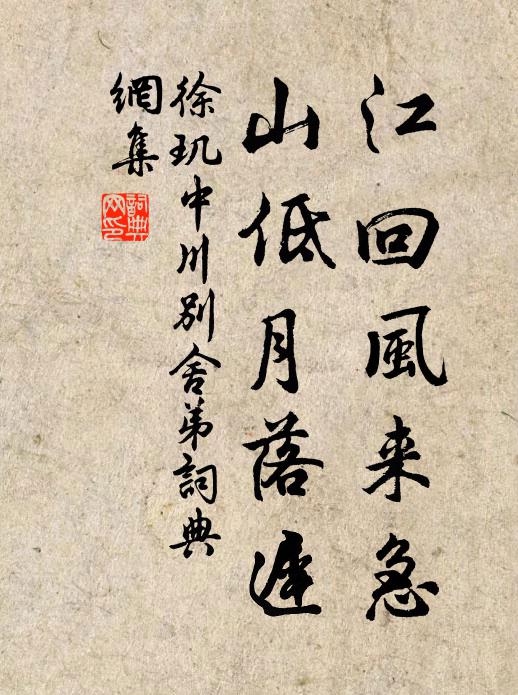 江回風来急
山低月落遲
徐玑中川別舍弟詞典
網集
詞典
网印